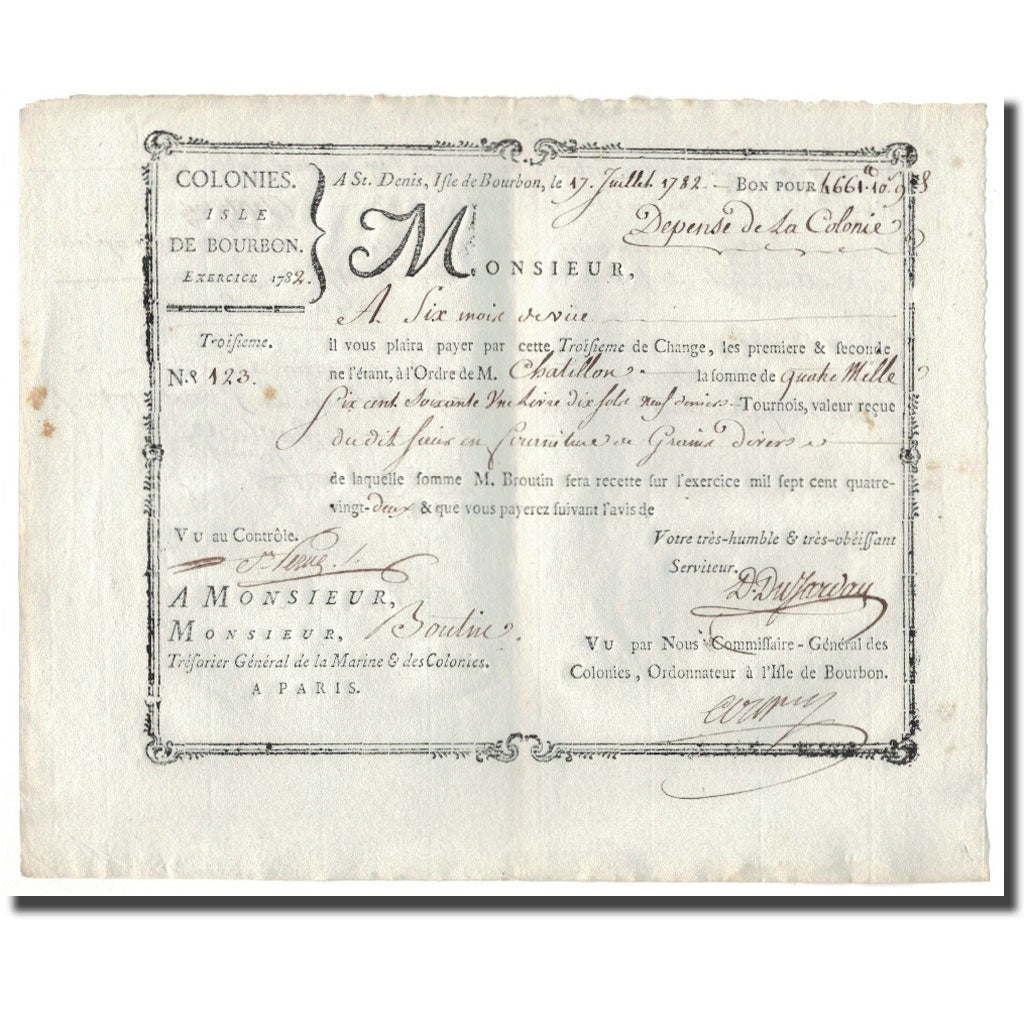 COLONIES.
ISLE
DE BOURBON.
EXERCICE 1782.
A St. Denis, Isle de Bourbon, le 17. Juillet 1782 — BON POUR 4661 ₶ 10 s 9 d
Depense de La Colonie
MONSIEUR,
A Six mois de vüe
Troisieme.
N.º 123.
il vous plaira payer par cette Troisieme de Change, les premiere & seconde
ne l'étant, à l'Ordre de M. Chatillon — la somme de quatre Mille
Six cent Soixante Une Livre dix sols neuf deniers — Tournois, valeur reçue
du dit Sieur en fourniture de Grains divers
de laquelle somme M. Broutin sera recette sur l'exercice mil sept cent quatre-
vingt-deux & que vous payerez suivant l'avis de
VU au Contrôle.
Votre très-humble & très-obéissant
Serviteur.
D. Dujardou
A MONSIEUR,
MONSIEUR, Boutin
Trésorier Général de la Marine & des Colonies.
A PARIS.
VU par Nous Commissaire-Général des
Colonies, Ordonnateur à l'Isle de Bourbon.